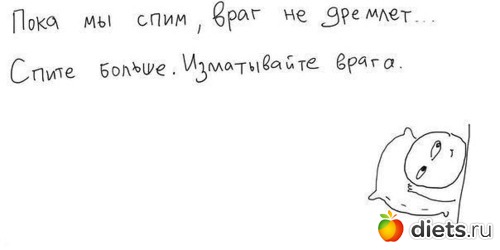 Пока мы спим, враг не дремлет...
Спите больше. Изматывайте врага.
diets.ru